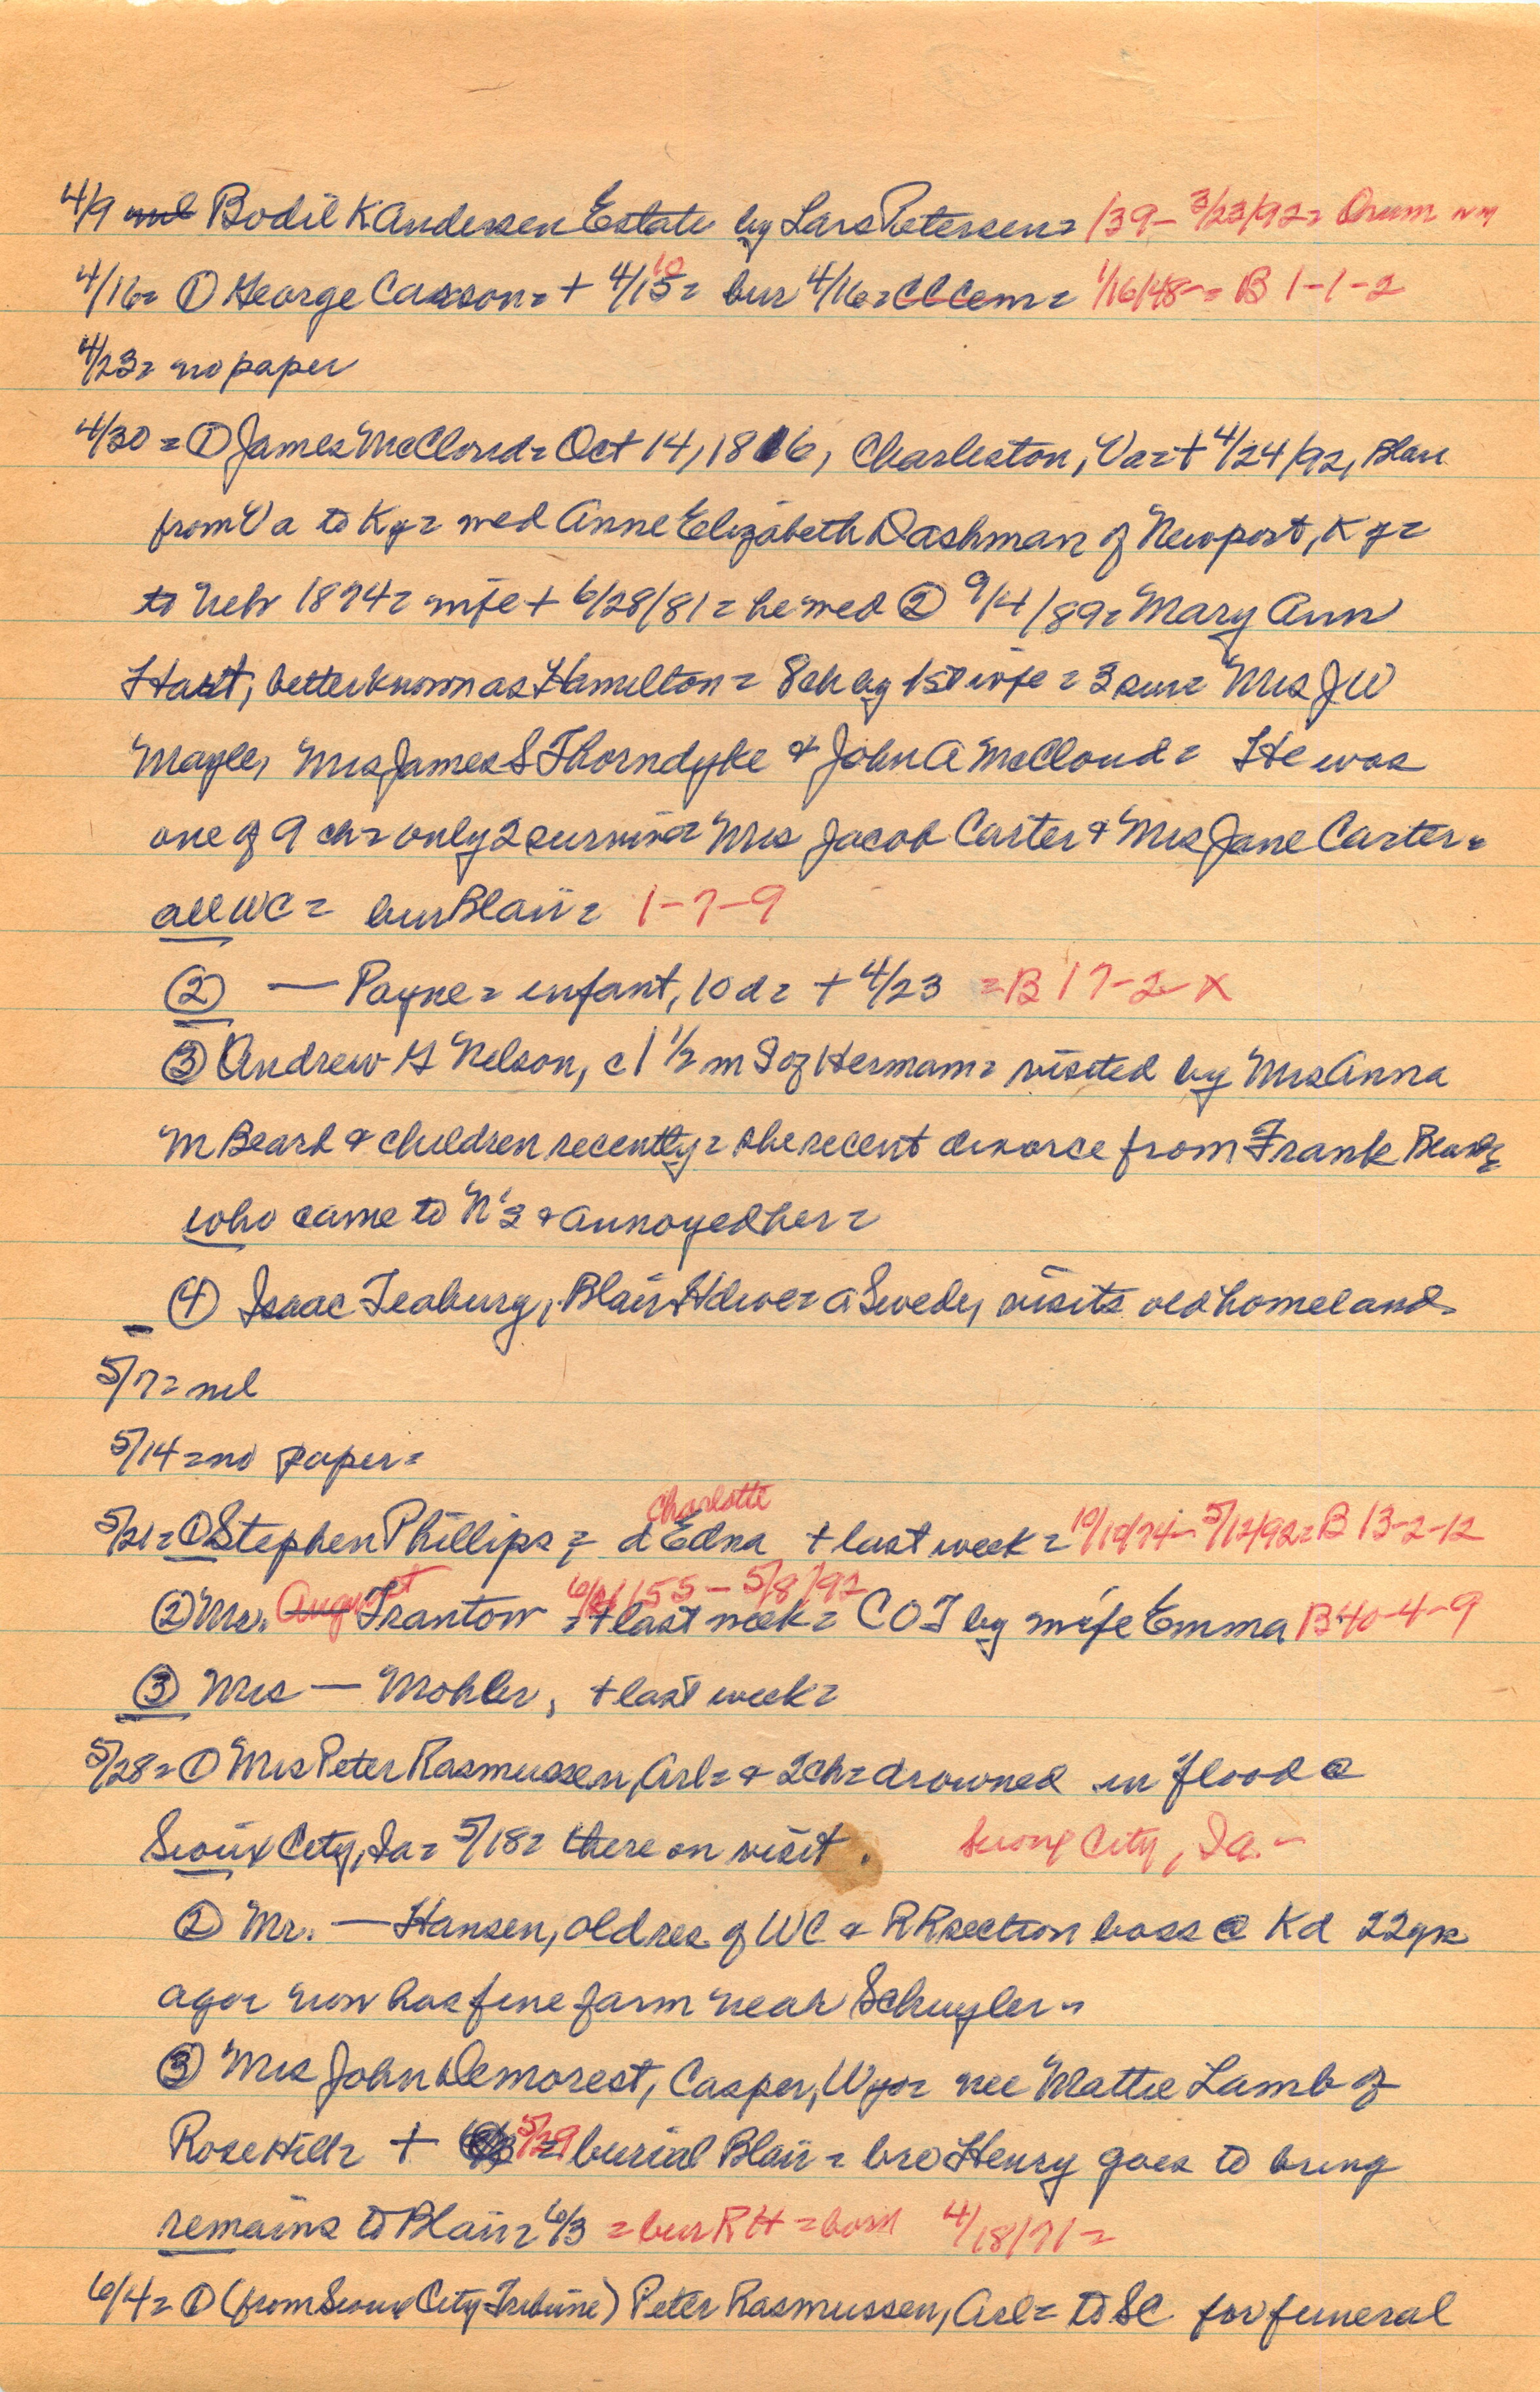 4/9 nil Bodil K Andersen Estate by Lars Petersen = 139- 3/23/92 = Orum
4/16 = ① George Carson = + 4/15 10 = bur 4/16 = CC Cem = 1/16/48- = B 1-1-2
4/23 = no paper
4/30 = ① James McCloud = Oct 14, 1816, Charleston, Va = + 4/24/92, Blair
from Va to Ky = wed Anne Elizabeth Dashman of Newport, Ky =
to Nebr 1874 = wife + 6/28/81 = he wed ② 9/4/89 = Mary Ann
Hart, better known as Hamilton = 8 ch by 1st wife = 3 sur = Mrs J W
Mayle, Mrs James S Thorndyke & John A McCloud = He was
one of 9 ch = only 2 survive = Mrs Jacob Carter & Mrs Jane Carter =
all WC = bur Blair = 1-7-9
② — Payne = infant, 10 d = + 4/23 = B 17-2-X
③ Andrew G Nelson, c 1 1/2 m S of Herman = visited by Mrs Anna
M Beard & children recently = she recent divorce from Frank Beard,
who came to N's & annoyed her =
④ Isaac Teaburg, Blair Hdwe = a Swede, visits old homeland.
5/7 = nil
5/14 = no paper =
5/21 = ① Stephen Phillips = d Edna Charlotte + last week = 10/12/74- 5/12/92 = B 13-2-12
② Mr. August Frantow = + last week = 55 - 5/8/92 C O T by wife Emma B 40-4-9
③ Mrs — Mohler, + last week =
5/28 = ① Mrs Peter Rasmussen, Arl = & 2 ch = drowned in flood @
Sioux City, Ia = 5/18 = there on visit. Sioux City, Ia. -
② Mr. — Hansen, old res of WC & RR section boss @ Kd 22 yrs
ago = now has fine farm near Schuyler =
③ Mrs John Demorest, Casper, Wyo = nee Mattie Lamb of
Rose Hill = + 5/29 = burial Blair = bro Henry goes to bring
remains to Blair = 6/3 = bur RH = born 4/18/71 =
6/4 = ① (from Sioux City Tribune) Peter Rasmussen, Arl = to SC for funeral